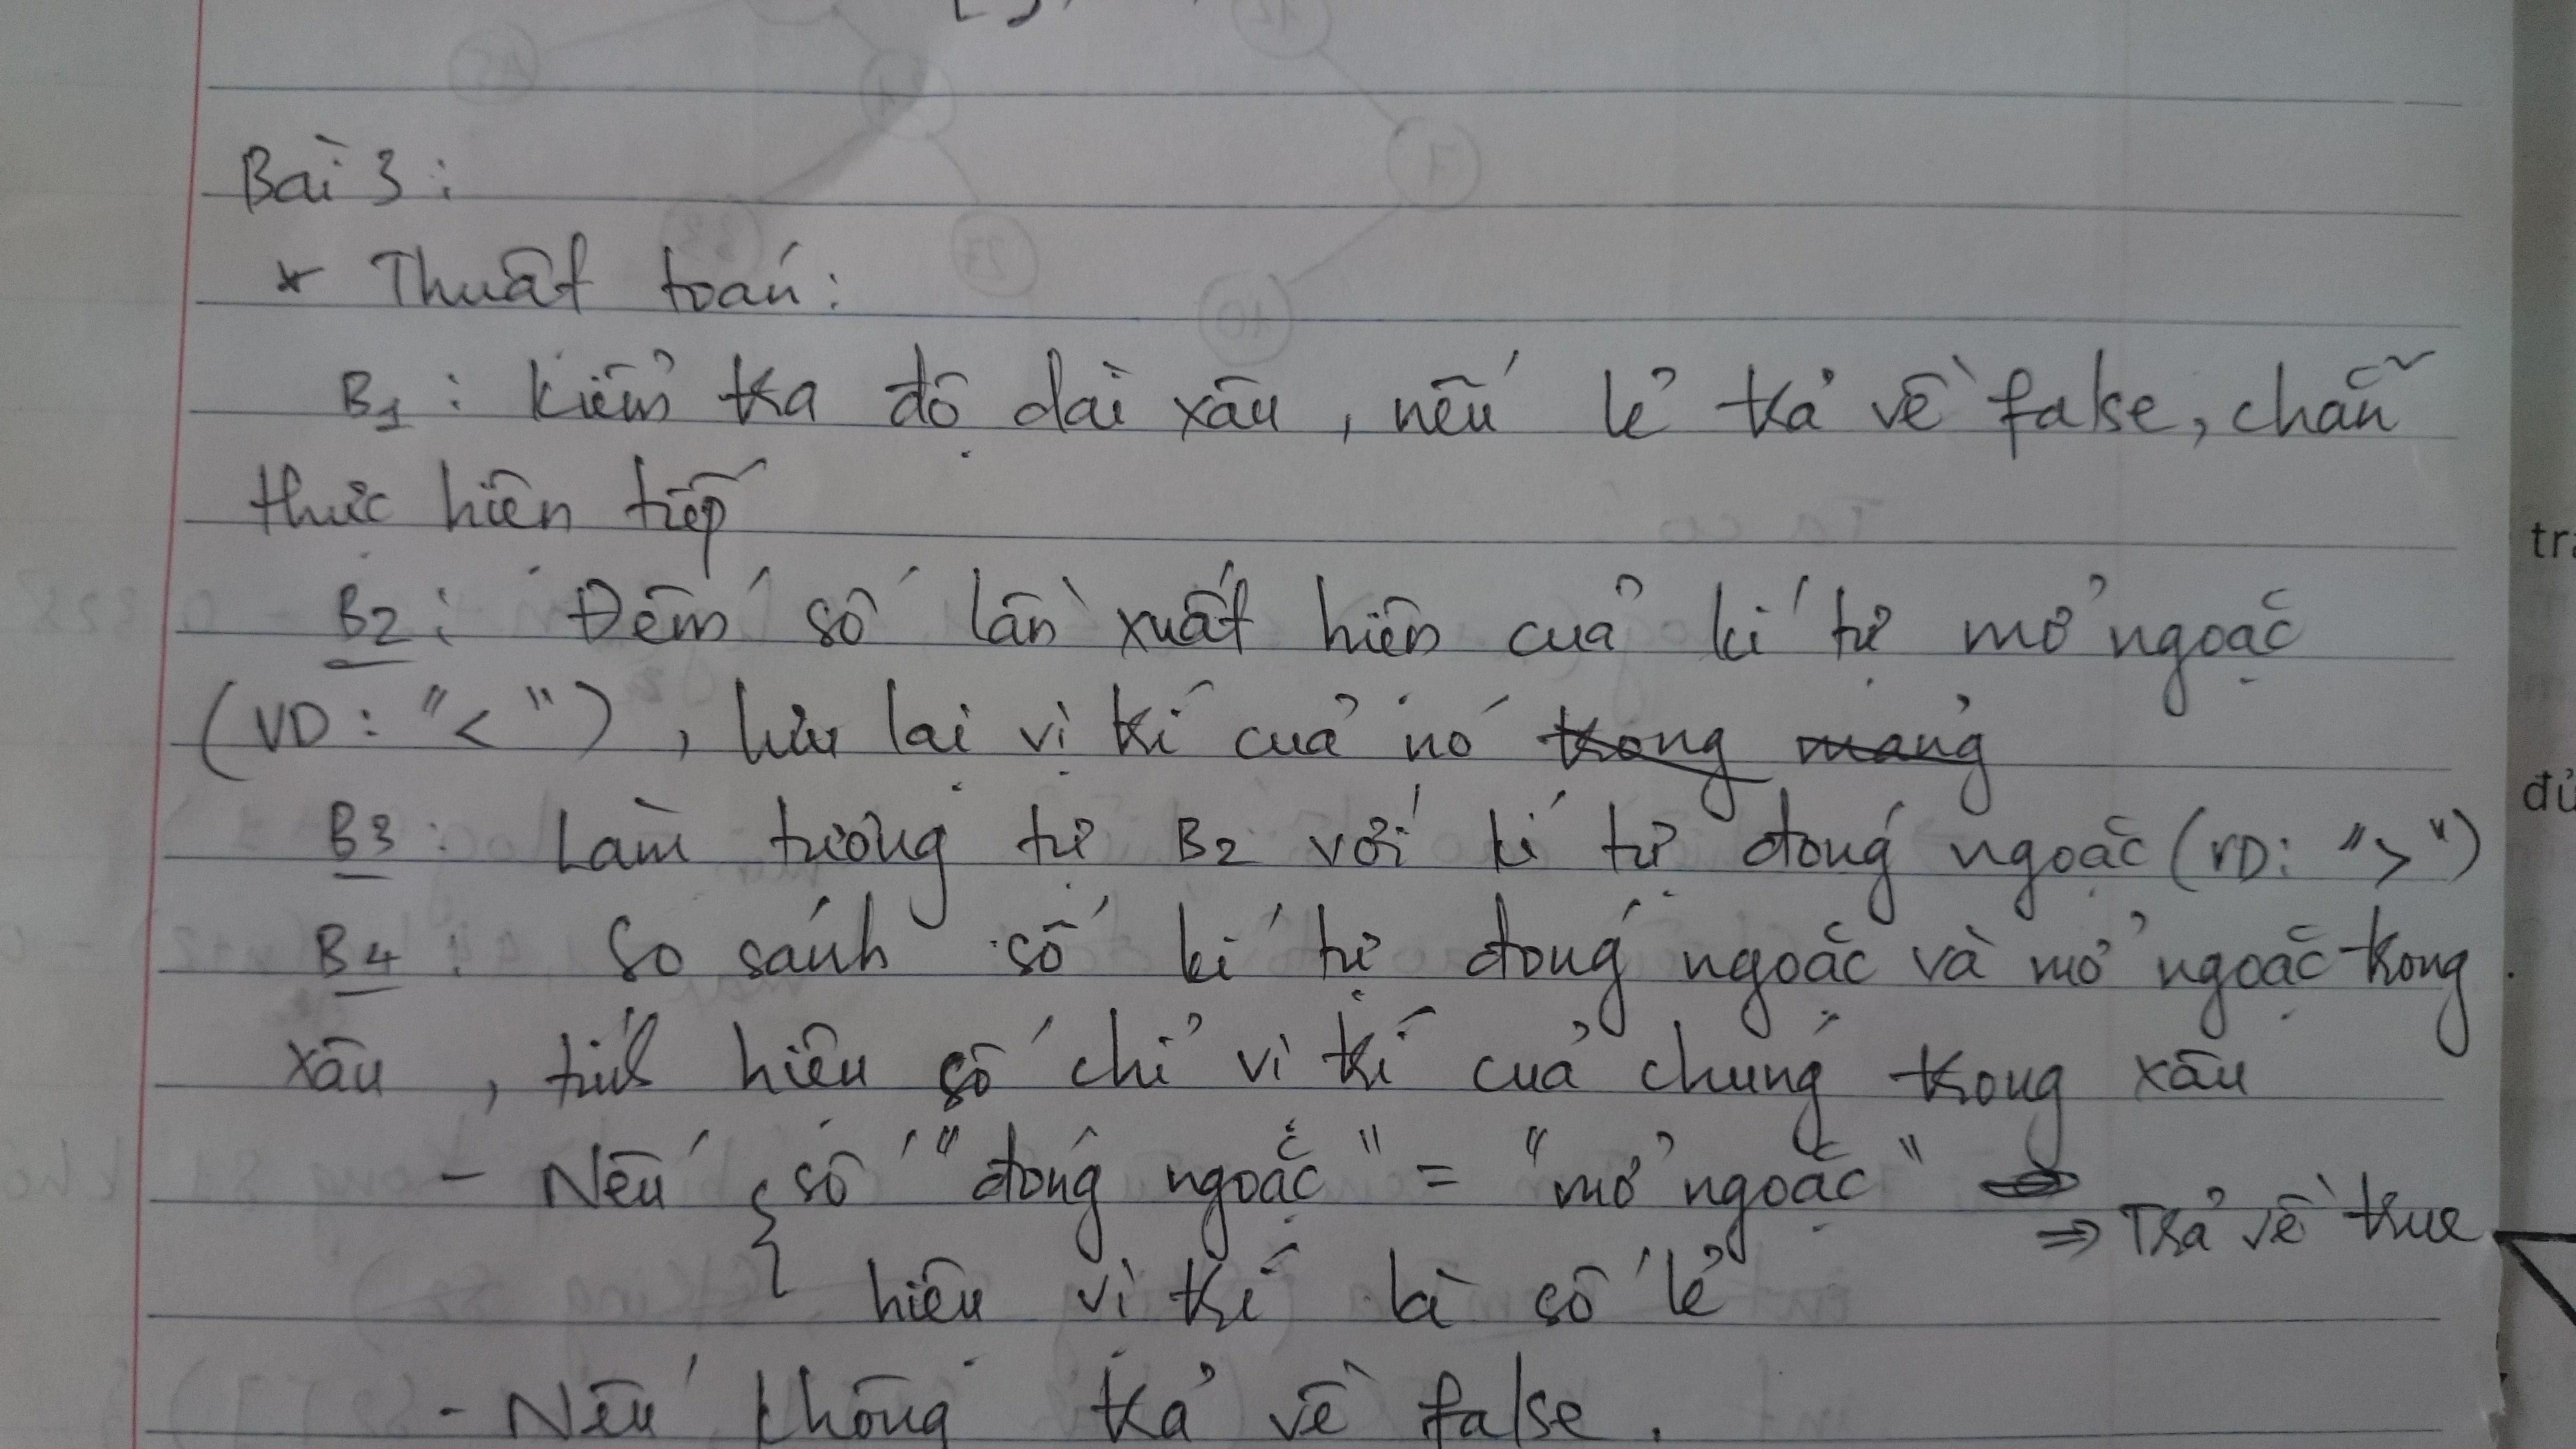 Bài 3:
* Thuật toán:
B1: kiểm tra độ dài xâu, nếu lẻ trả về false, chẵn
thực hiện tiếp
B2: Đếm số lần xuất hiện của kí tự mở ngoặc
(VD: "<"), lưu lại vị trí của nó trong mảng
B3: Làm tương tự B2 với kí tự đóng ngoặc (VD: ">")
B4: So sánh số kí tự đóng ngoặc và mở ngoặc trong
xâu, tính hiệu số chỉ vị trí của chúng trong xâu
- Nếu { số "đóng ngoặc" = "mở ngoặc"
⇒ Trả về true
hiệu vị trí là số lẻ
- Nếu không trả về false.